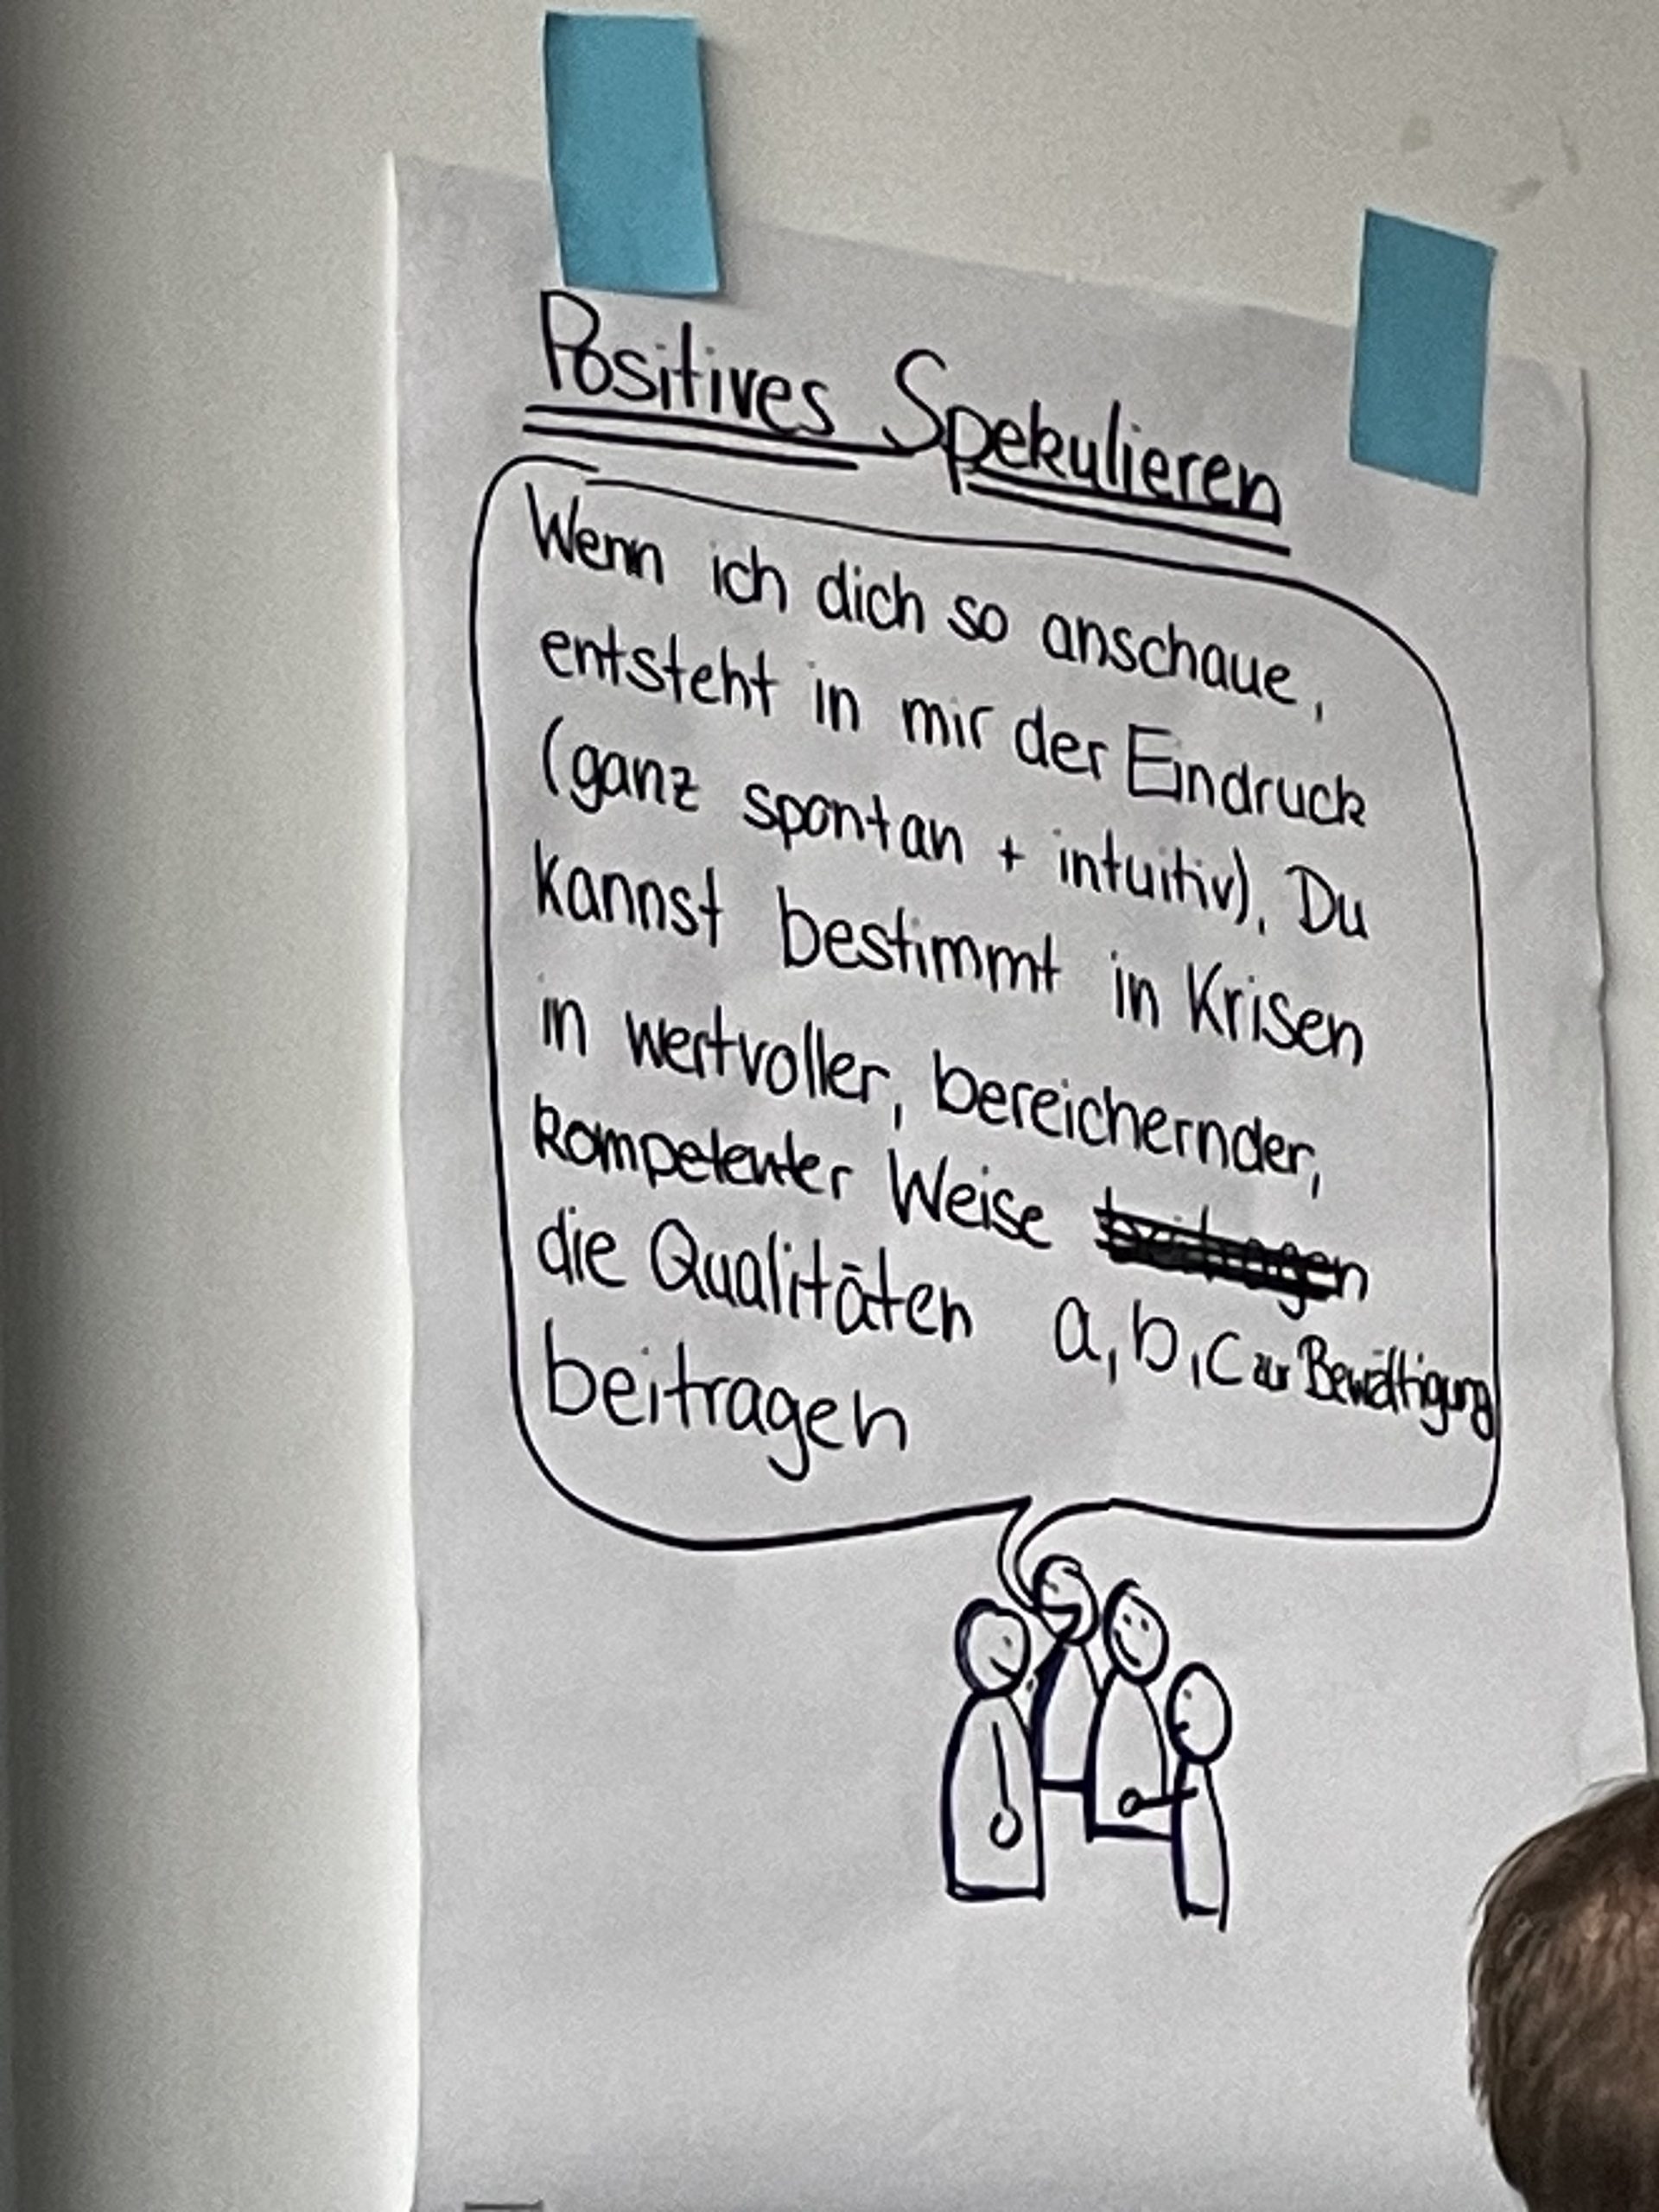 Positives Spekulieren
Wenn ich dich so anschaue,
entsteht in mir der Eindruck
(ganz spontan + intuitiv), Du
kannst bestimmt in Krisen
in wertvoller, bereichernder,
kompetenter Weise beitragen
die Qualitäten a, b, c zur Bewältigung
beitragen